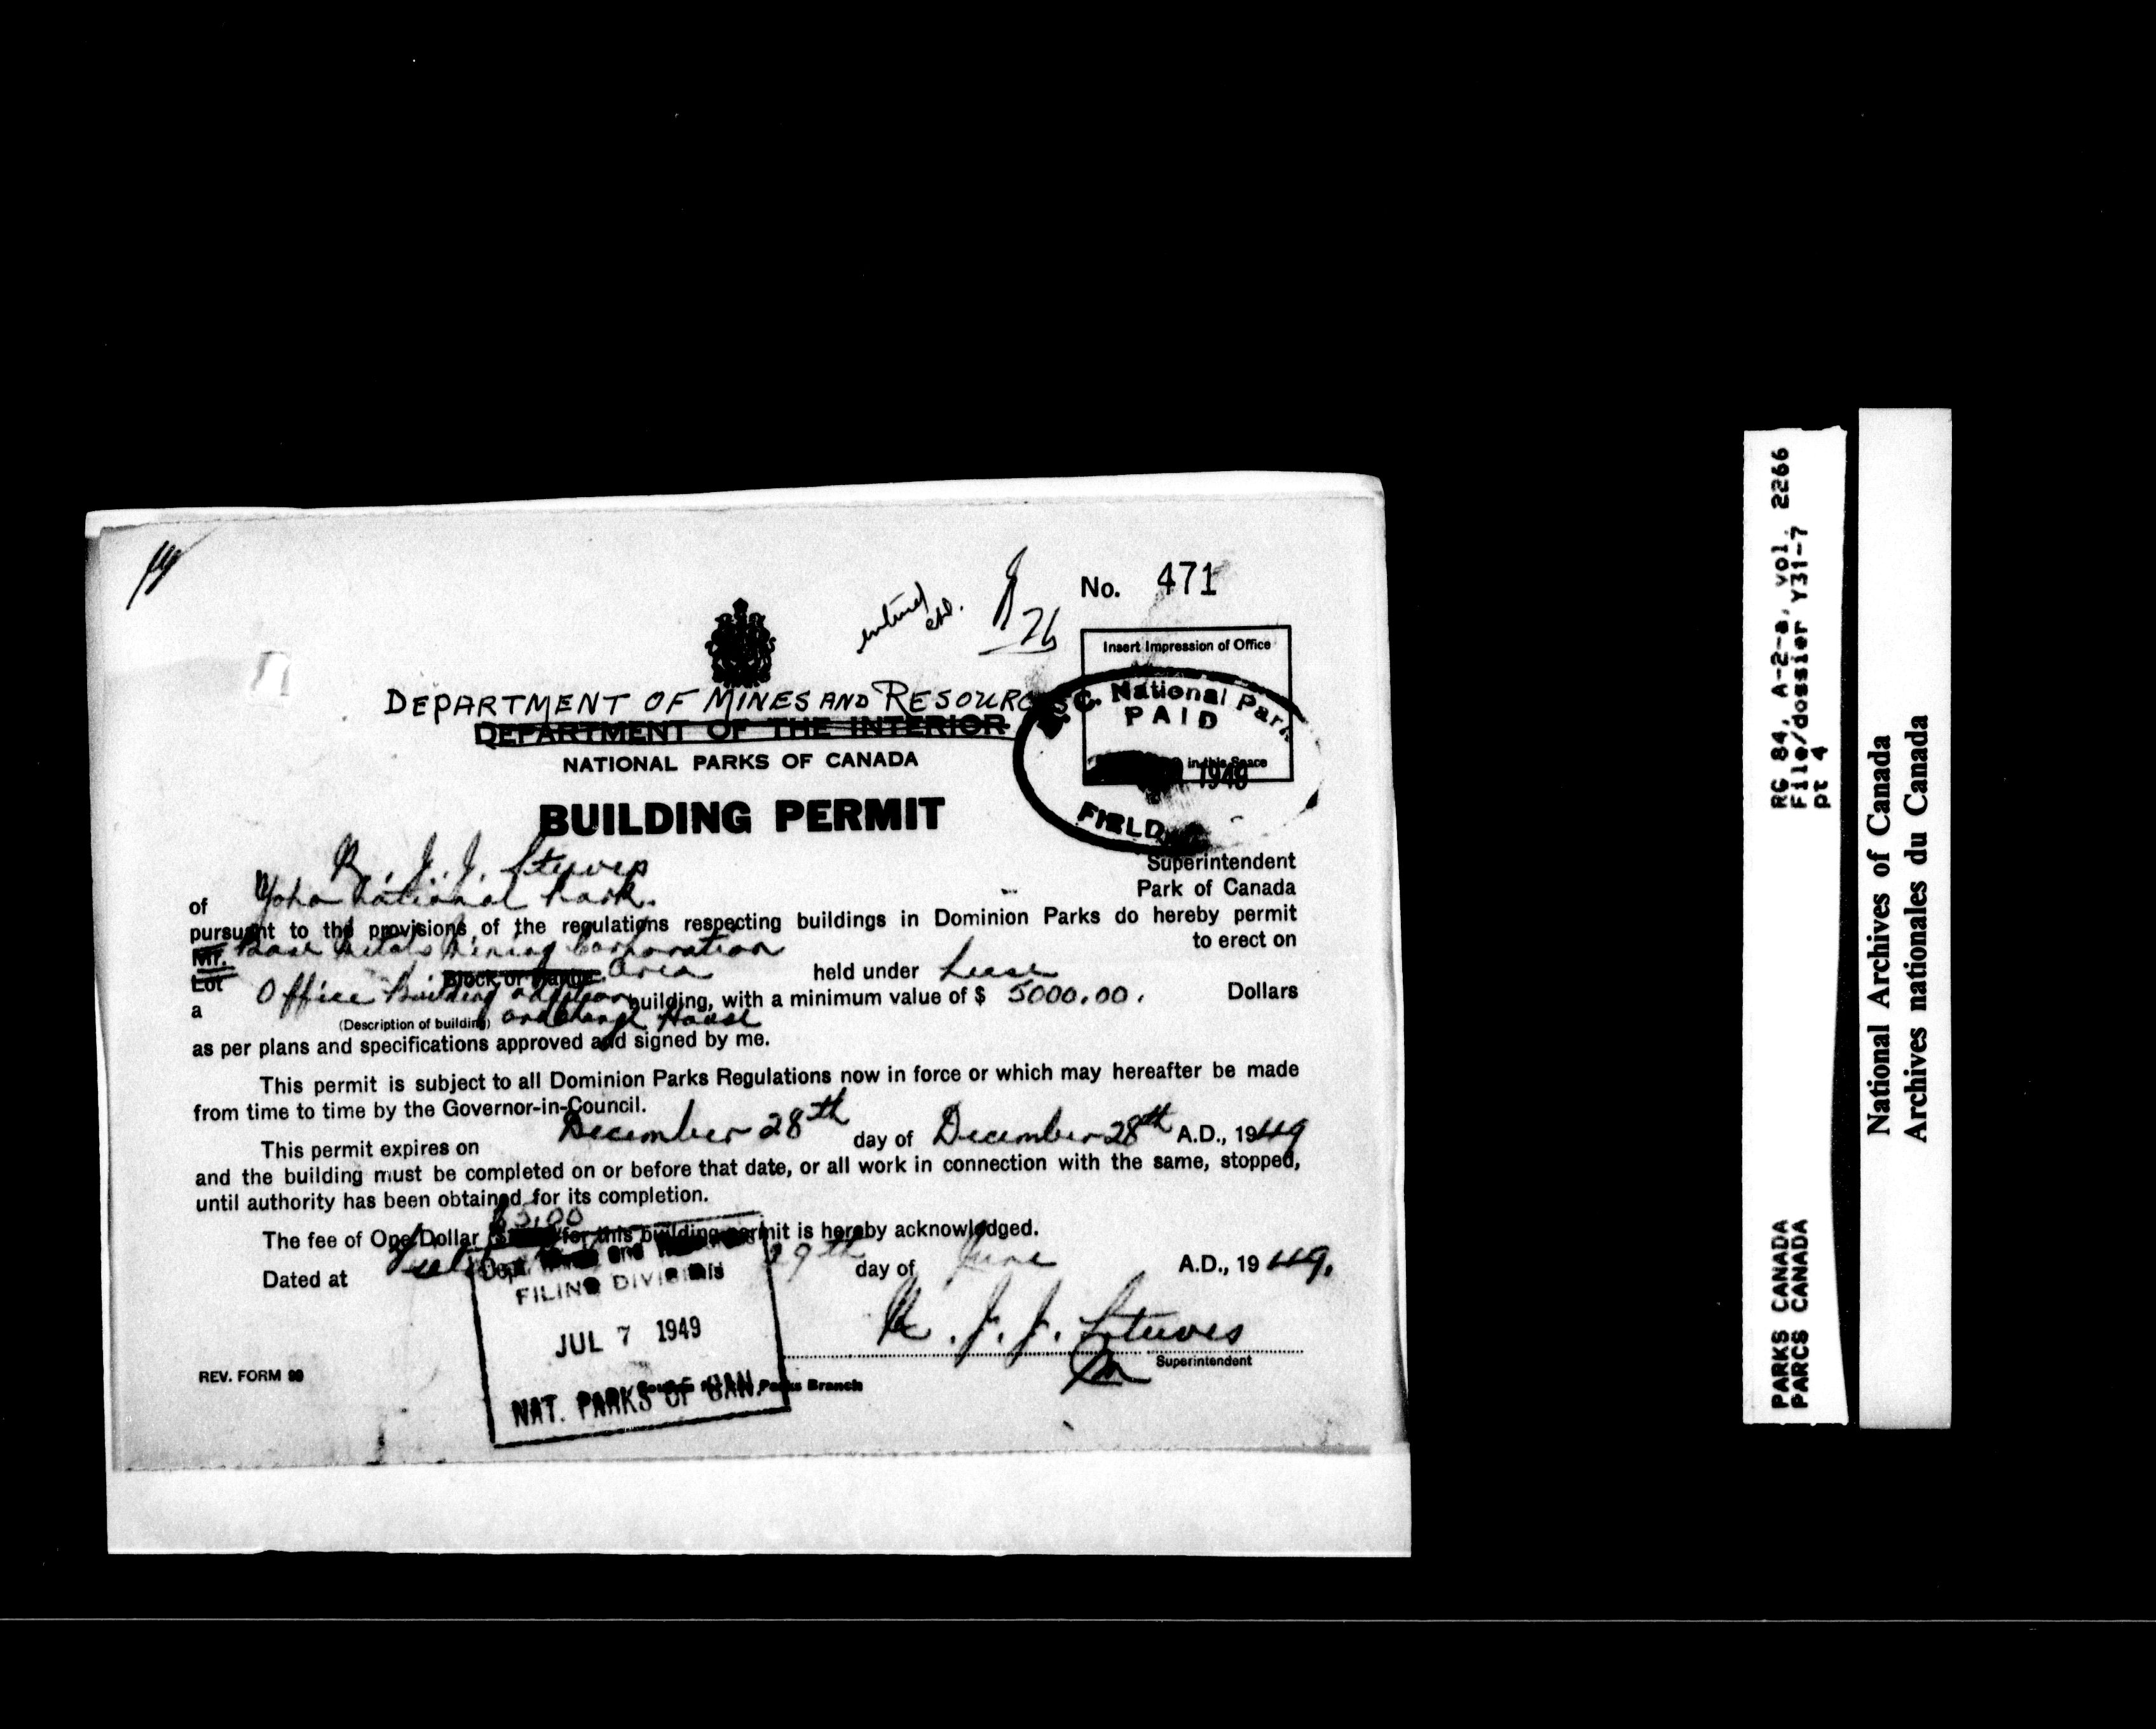 No. 471
entered
26
Insert Impression of Office
DEPARTMENT OF MINES AND RESOURC
B.C. National Park
PAID
DEPARTMENT OF THE INTERIOR
NATIONAL PARKS OF CANADA
in this Space
1949
BUILDING PERMIT
FIELD
R. J. J. Steeves Superintendent
of Yoho National Park. Park of Canada
pursuant to the provisions of the regulations respecting buildings in Dominion Parks do hereby permit
Mr. Base Metals Mining Corporation to erect on
Lot Block or Range Area held under Lease
a Office Building addition building, with a minimum value of $ 5000.00. Dollars
(Description of building) and House
as per plans and specifications approved and signed by me.
This permit is subject to all Dominion Parks Regulations now in force or which may hereafter be made
from time to time by the Governor-in-Council.
This permit expires on December 28th day of December 28th A.D., 1949
and the building must be completed on or before that date, or all work in connection with the same, stopped,
until authority has been obtained for its completion.
$5.00
The fee of One Dollar for this building permit is hereby acknowledged.
Dated at Field this 29th day of June A.D., 1949.
Dept. and
FILING DIVISION
JUL 7 1949
NAT. PARKS OF CAN.
R. J. J. Steeves
Superintendent
REV. FORM 99
Parks Branch
RG 84, A-2-a, vol. 2266
File/dossier Y31-7
pt 4
PARKS CANADA
PARCS CANADA
National Archives of Canada
Archives nationales du Canada